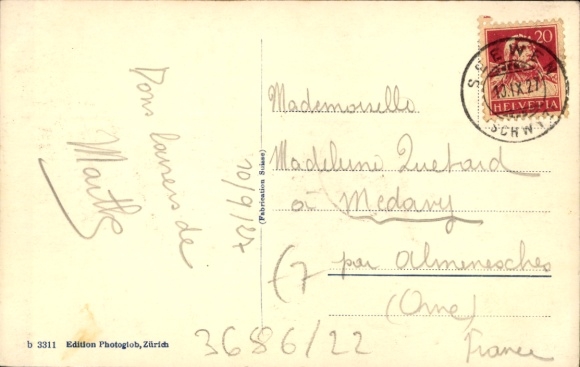 Bons baisers de
Marthe
10/9/27
(Fabrication Suisse)
20
HELVETIA
SEEWEN
10.IX.27
(SCHWYZ)
Mademoiselle
Madeleine
à Médavy
par Almenesches
(Orne)
France
3686/22
b 3311 Edition Photoglob, Zürich